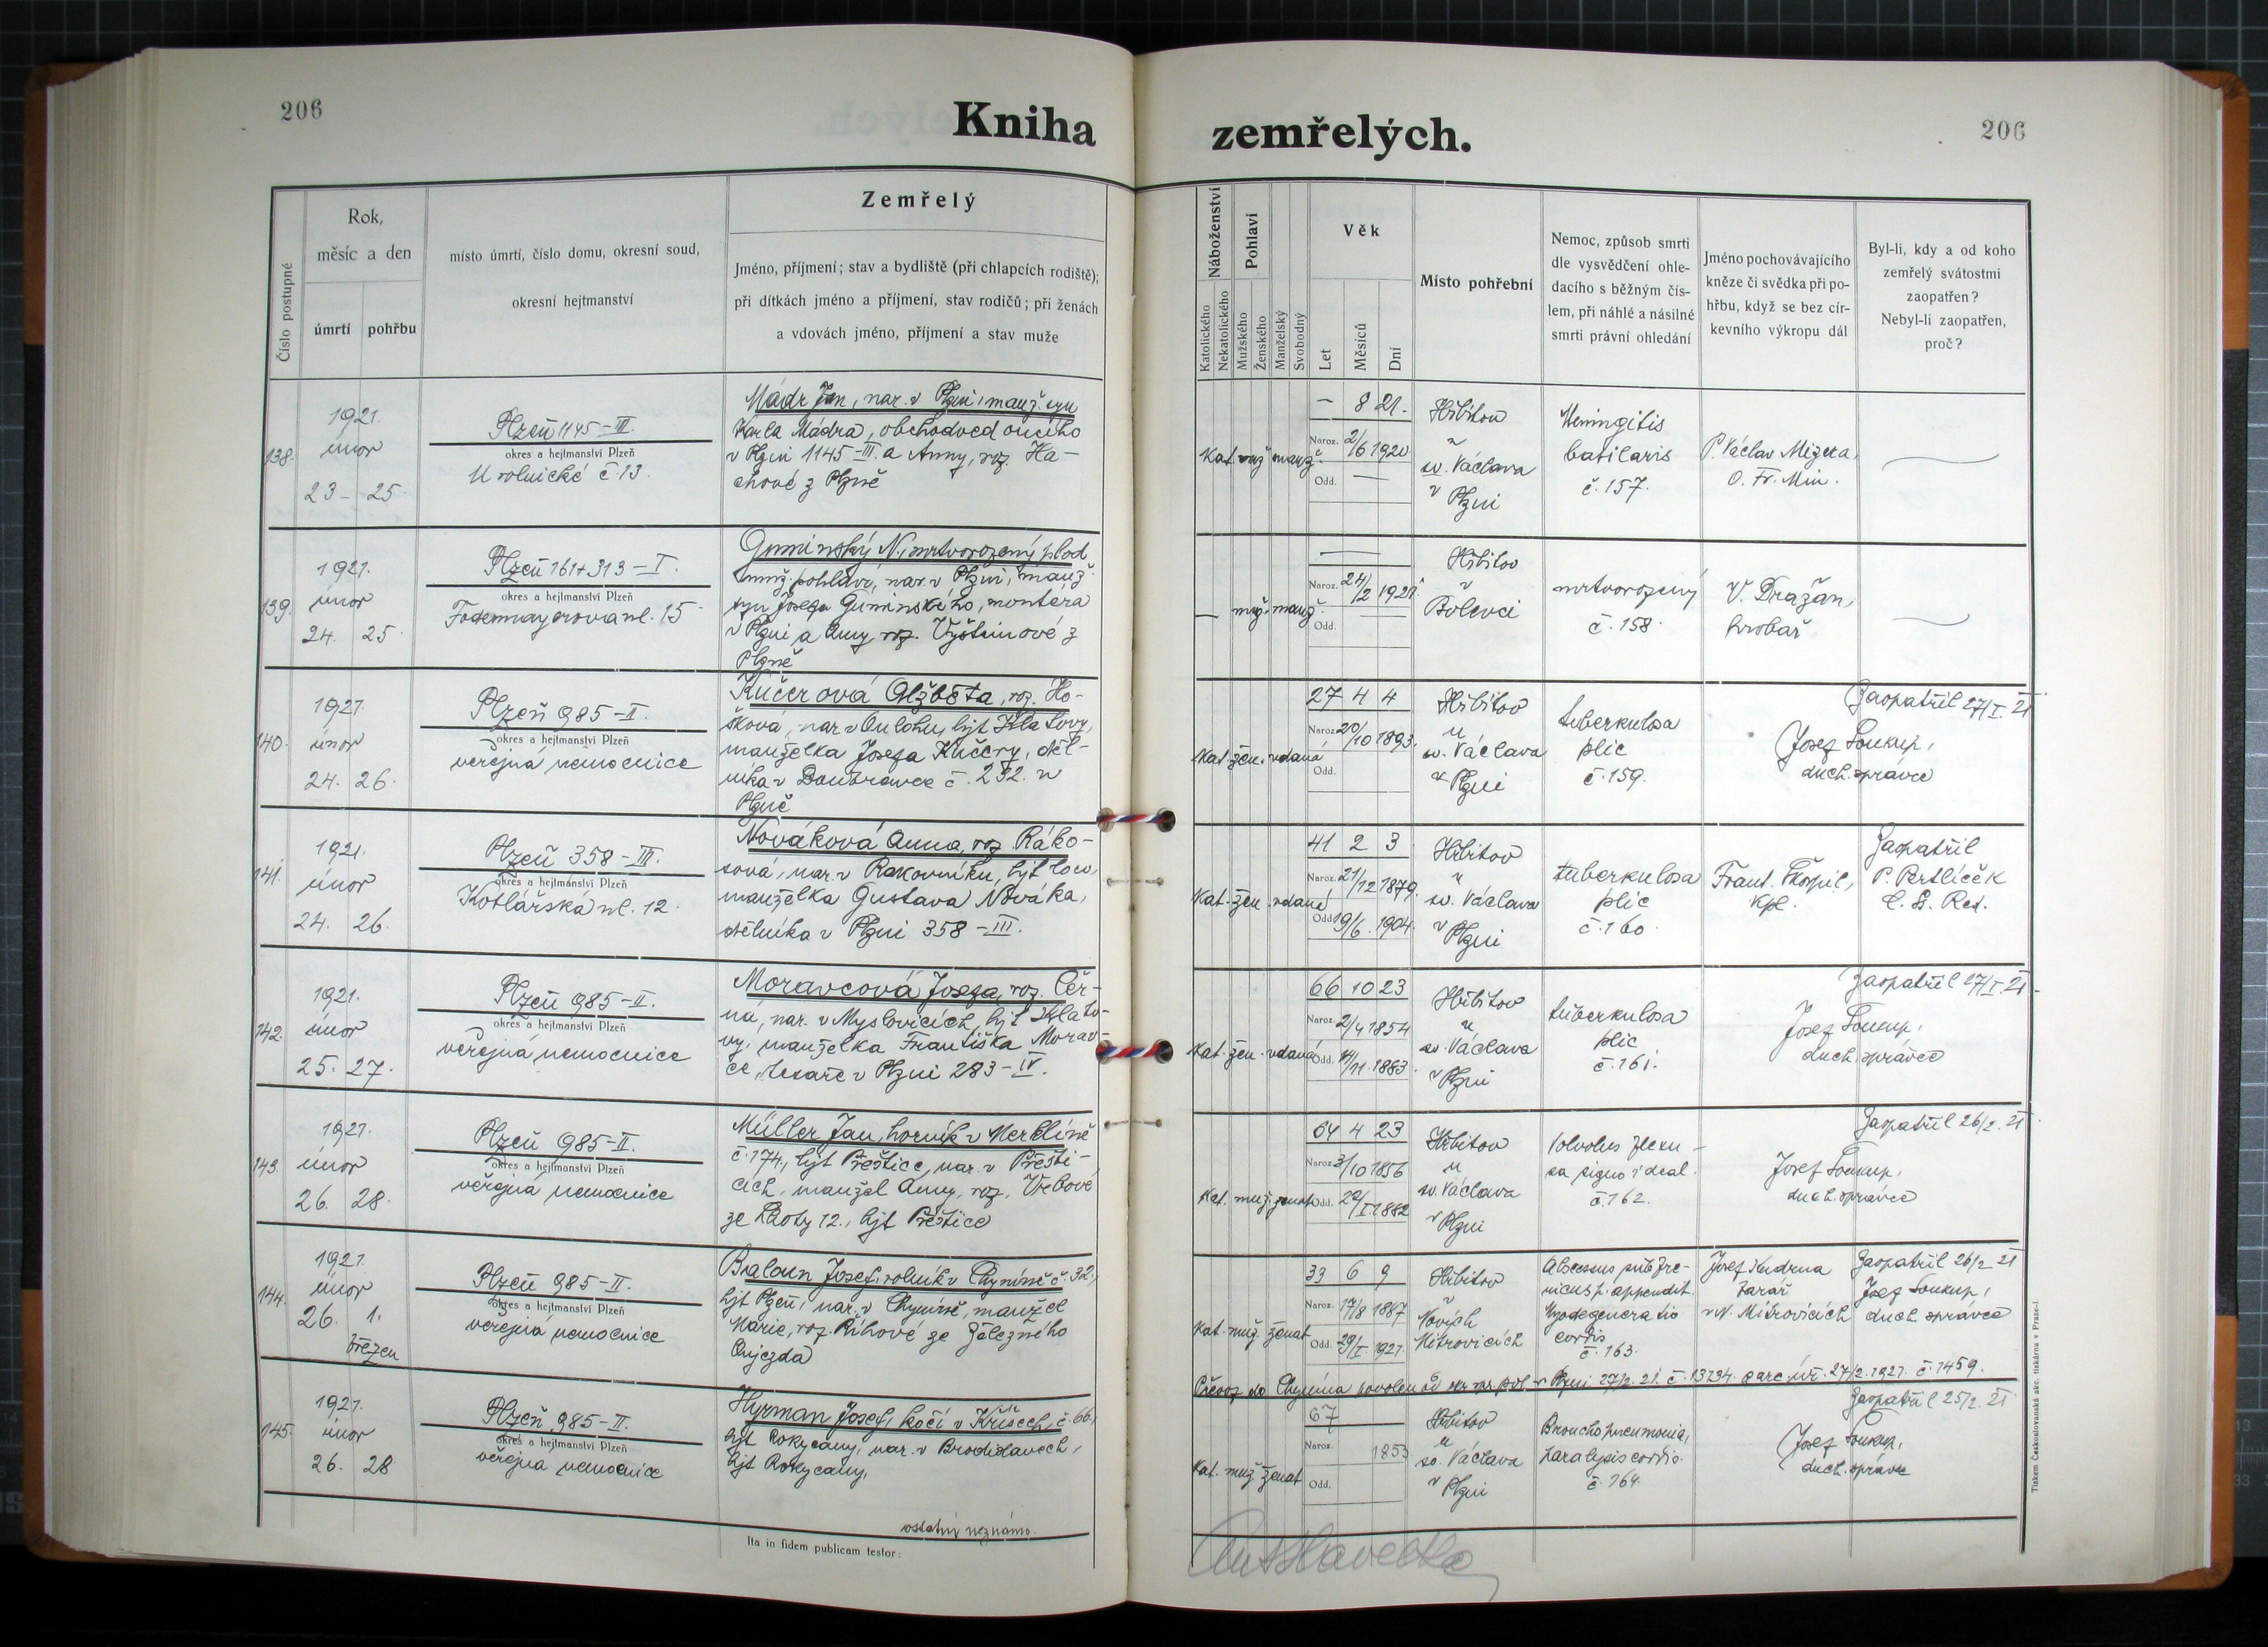 206
Kniha zemřelých.
206
Číslo postupné
Rok,
měsíc a den
úmrtí
pohřbu
místo úmrtí, číslo domu, okresní soud,
okresní hejtmanství
Zemřelý
Jméno, příjmení; stav a bydliště (při chlapcích rodiště);
při dítkách jméno a příjmení, stav rodičů; při ženách
a vdovách jméno, příjmení a stav muže
Náboženství
Katolického
Nekatolického
Pohlaví
Mužského
Ženského
Manželský
Svobodný
Věk
Let
Měsíců
Dní
Místo pohřební
Nemoc, způsob smrti
dle vysvědčení ohle-
dacího s běžným čís-
lem, při náhlé a násilné
smrti právní ohledání
Jméno pochovávajícího
kněze či svědka při po-
hřbu, když se bez cír-
kevního výkropu dál
Byl-li, kdy a od koho
zemřelý svátostmi
zaopatřen?
Nebyl-li zaopatřen,
proč?
138.
1921.
únor
23 – 25.
Plzeň 1145 – III.
okres a hejtmanství Plzeň
U rolnické č. 13.
Mádr Jan, nar. v Plzni, manž. syn
Karla Mádra, obchodvedoucího
v Plzni 1145 – III. a Anny, roz. Ha-
chové z Plzně
Kat. muž. manž.
– 8 21.
Naroz. 2/6 1920
Odd. —
Hřbitov
u
sv. Václava
v Plzni
Meningitis
basilaris
č. 157.
P. Václav Mizera,
O. Fr. Min.
139.
1921.
únor
24. 25.
Plzeň 161+313 – I.
okres a hejtmanství Plzeň
Fodermayerova ul. 15
Guminský N., mrtvorozený plod
muž. pohlaví, nar. v Plzni, manž.
syn Josefa Guminského, montéra
v Plzni a Anny roz. z
Plzně
— muž. manž.
Naroz. 24/2 1921.
Odd.
Hřbitov
v
Bolevci
mrtvorozený
č. 158.
V. Dražan,
hrobař
140.
1921.
únor
24. 26.
Plzeň 985 – II.
okres a hejtmanství Plzeň
veřejná nemocnice
Kučerová Alžběta, roz. Ho-
šková, nar. v hejt. Klatovy,
manželka Josefa Kučery, děl-
níka v Doubravce č. 232. u
Plzně
Kat. žen. vdaná
27 4 4
Naroz. 20/10 1893.
Odd.
Hřbitov
u
sv. Václava
v Plzni
tuberkulosa
plic
č. 159.
Zaopatřil 27/I. 21
Josef Soukup,
duch. správce
141.
1921.
únor
24. 26.
Plzeň 358 – III.
okres a hejtmanství Plzeň
Kotlářská ul. 12.
Nováková Anna, roz. Ráko-
sová, nar. v Rakovníku, hejt.
manželka Gustava Nováka,
dělníka v Plzni 358 – III.
Kat. žen. vdaná
41 2 3
Naroz. 21/12 1879.
Odd. 19/6. 1904.
Hřbitov
u
sv. Václava
v Plzni
tuberkulosa
plic
č. 160.
Frant. Škorpil,
kpl.
Zaopatřil
P. Pertlíček
C. Ss. Red.
142.
1921.
únor
25. 27.
Plzeň 985 – II.
okres a hejtmanství Plzeň
veřejná nemocnice
Moravcová Josefa, roz. Čer-
ná, nar. v Myslovicích, hejt. Klato-
vy, manželka Františka Morav-
ce, tesaře v Plzni 283 – IV.
Kat. žen. vdaná
66 10 23
Naroz. 2/4 1854
Odd. 14/11. 1883.
Hřbitov
u
sv. Václava
v Plzni
tuberkulosa
plic
č. 161.
Zaopatřil 27/I. 21.
Josef Soukup,
duch. správce
143.
1921.
únor
26. 28.
Plzeň 985 – II.
okres a hejtmanství Plzeň
veřejná nemocnice
Müller Jan, horník v Merklíně
č. 174, hejt. Přeštice, nar. v Přešti-
cích, manžel Anny, roz. Vrbové
ze Lhoty 12., hejt. Přeštice
Kat. muž. ženat
64 4 23
Naroz. 3/10 1856
Odd. 1882
Hřbitov
u
sv. Václava
v Plzni
Volvolus flexu-
č. 162.
Zaopatřil 26/2. 21.
Josef Soukup,
duch. správce
144.
1921.
únor
26. 1.
březen
Plzeň 985 – II.
okres a hejtmanství Plzeň
veřejná nemocnice
Braloun Josef, rolník v Chyníně č. 32,
hejt. Plzeň, nar. v Chyníně, manžel
Marie, roz. Říhové ze Železného
Oujezda
Kat. muž. ženat
33 6 9
Naroz. 17/8 1887
Odd. 29/I. 1921.
Hřbitov
v
Nových
Mitrovicích
Abscessus subfre-
nicus p. appendit.
Myodegeneratio
cordis
č. 163.
Josef Kudrna
farář
v N. Mitrovicích
Zaopatřil 26/2 21
Josef Soukup,
duch. správce
Převoz do Chynína povolen od v Plzni 27/2. 21. č. 13734. 27/2. 1921. č. 1459.
145.
1921.
únor
26. 28
Plzeň 985 – II.
okres a hejtmanství Plzeň
veřejná nemocnice
Hyrman Josef, kočí v Křišech, č. 66,
hejt. Rokycany, nar. v Brodislavech,
hejt. Rokycany,
ostatní neznámo.
Kat. muž. ženat
67
Naroz. 1853
Odd.
Hřbitov
u
sv. Václava
v Plzni
Bronchopneumonia,
paralysis cordis.
č. 164.
Zaopatřil 25/2. 21
Josef Soukup,
duch. správce
Ita in fidem publicam testor:
Tiskem Československá akc. tiskárna v Praze-I